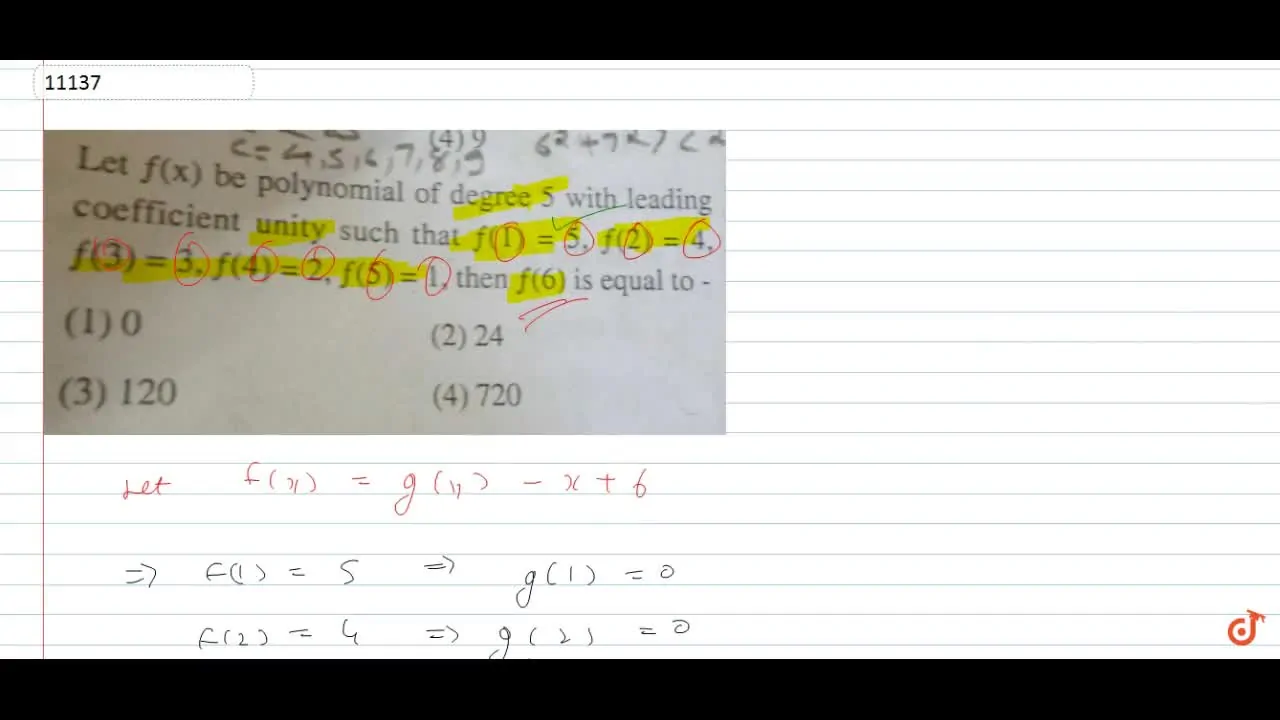 11137
(4) 9 6² + 7²
c = 4, 5, 6, 7, 8, 9
Let f(x) be polynomial of degree 5 with leading
coefficient unity such that f(1) = 5, f(2) = 4,
f(3) = 3, f(4) = 2, f(5) = 1, then f(6) is equal to -
(1) 0 (2) 24
(3) 120 (4) 720
Let f(x) = g(x) - x + 6
⇒ f(1) = 5 ⇒ g(1) = 0
f(2) = 4 ⇒ g(2) = 0